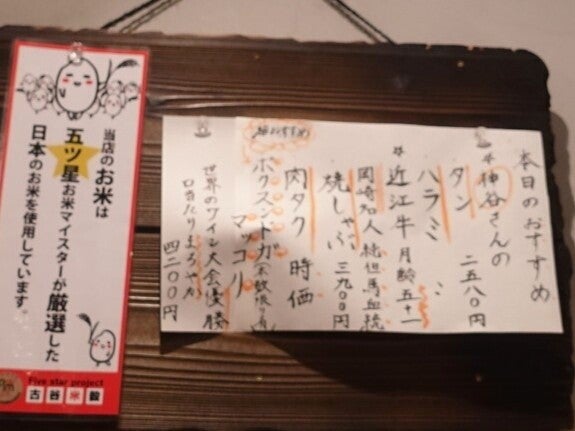 本日のおすすめ
*神谷さんの
タン 二五八〇円
ハラミ 〃
*近江牛 月齢五十一
岡崎和人 純但馬血統
焼しゃぶ 三九〇〇円
肉タク 時価
超おすすめ
ボクスンドガ
マッコリ
世界のワイン大会優勝
口当たりまろやか
四二〇〇円
当店のお米は
五ツ星お米マイスターが厳選した
日本のお米を使用しています。
Five star project
古谷米穀